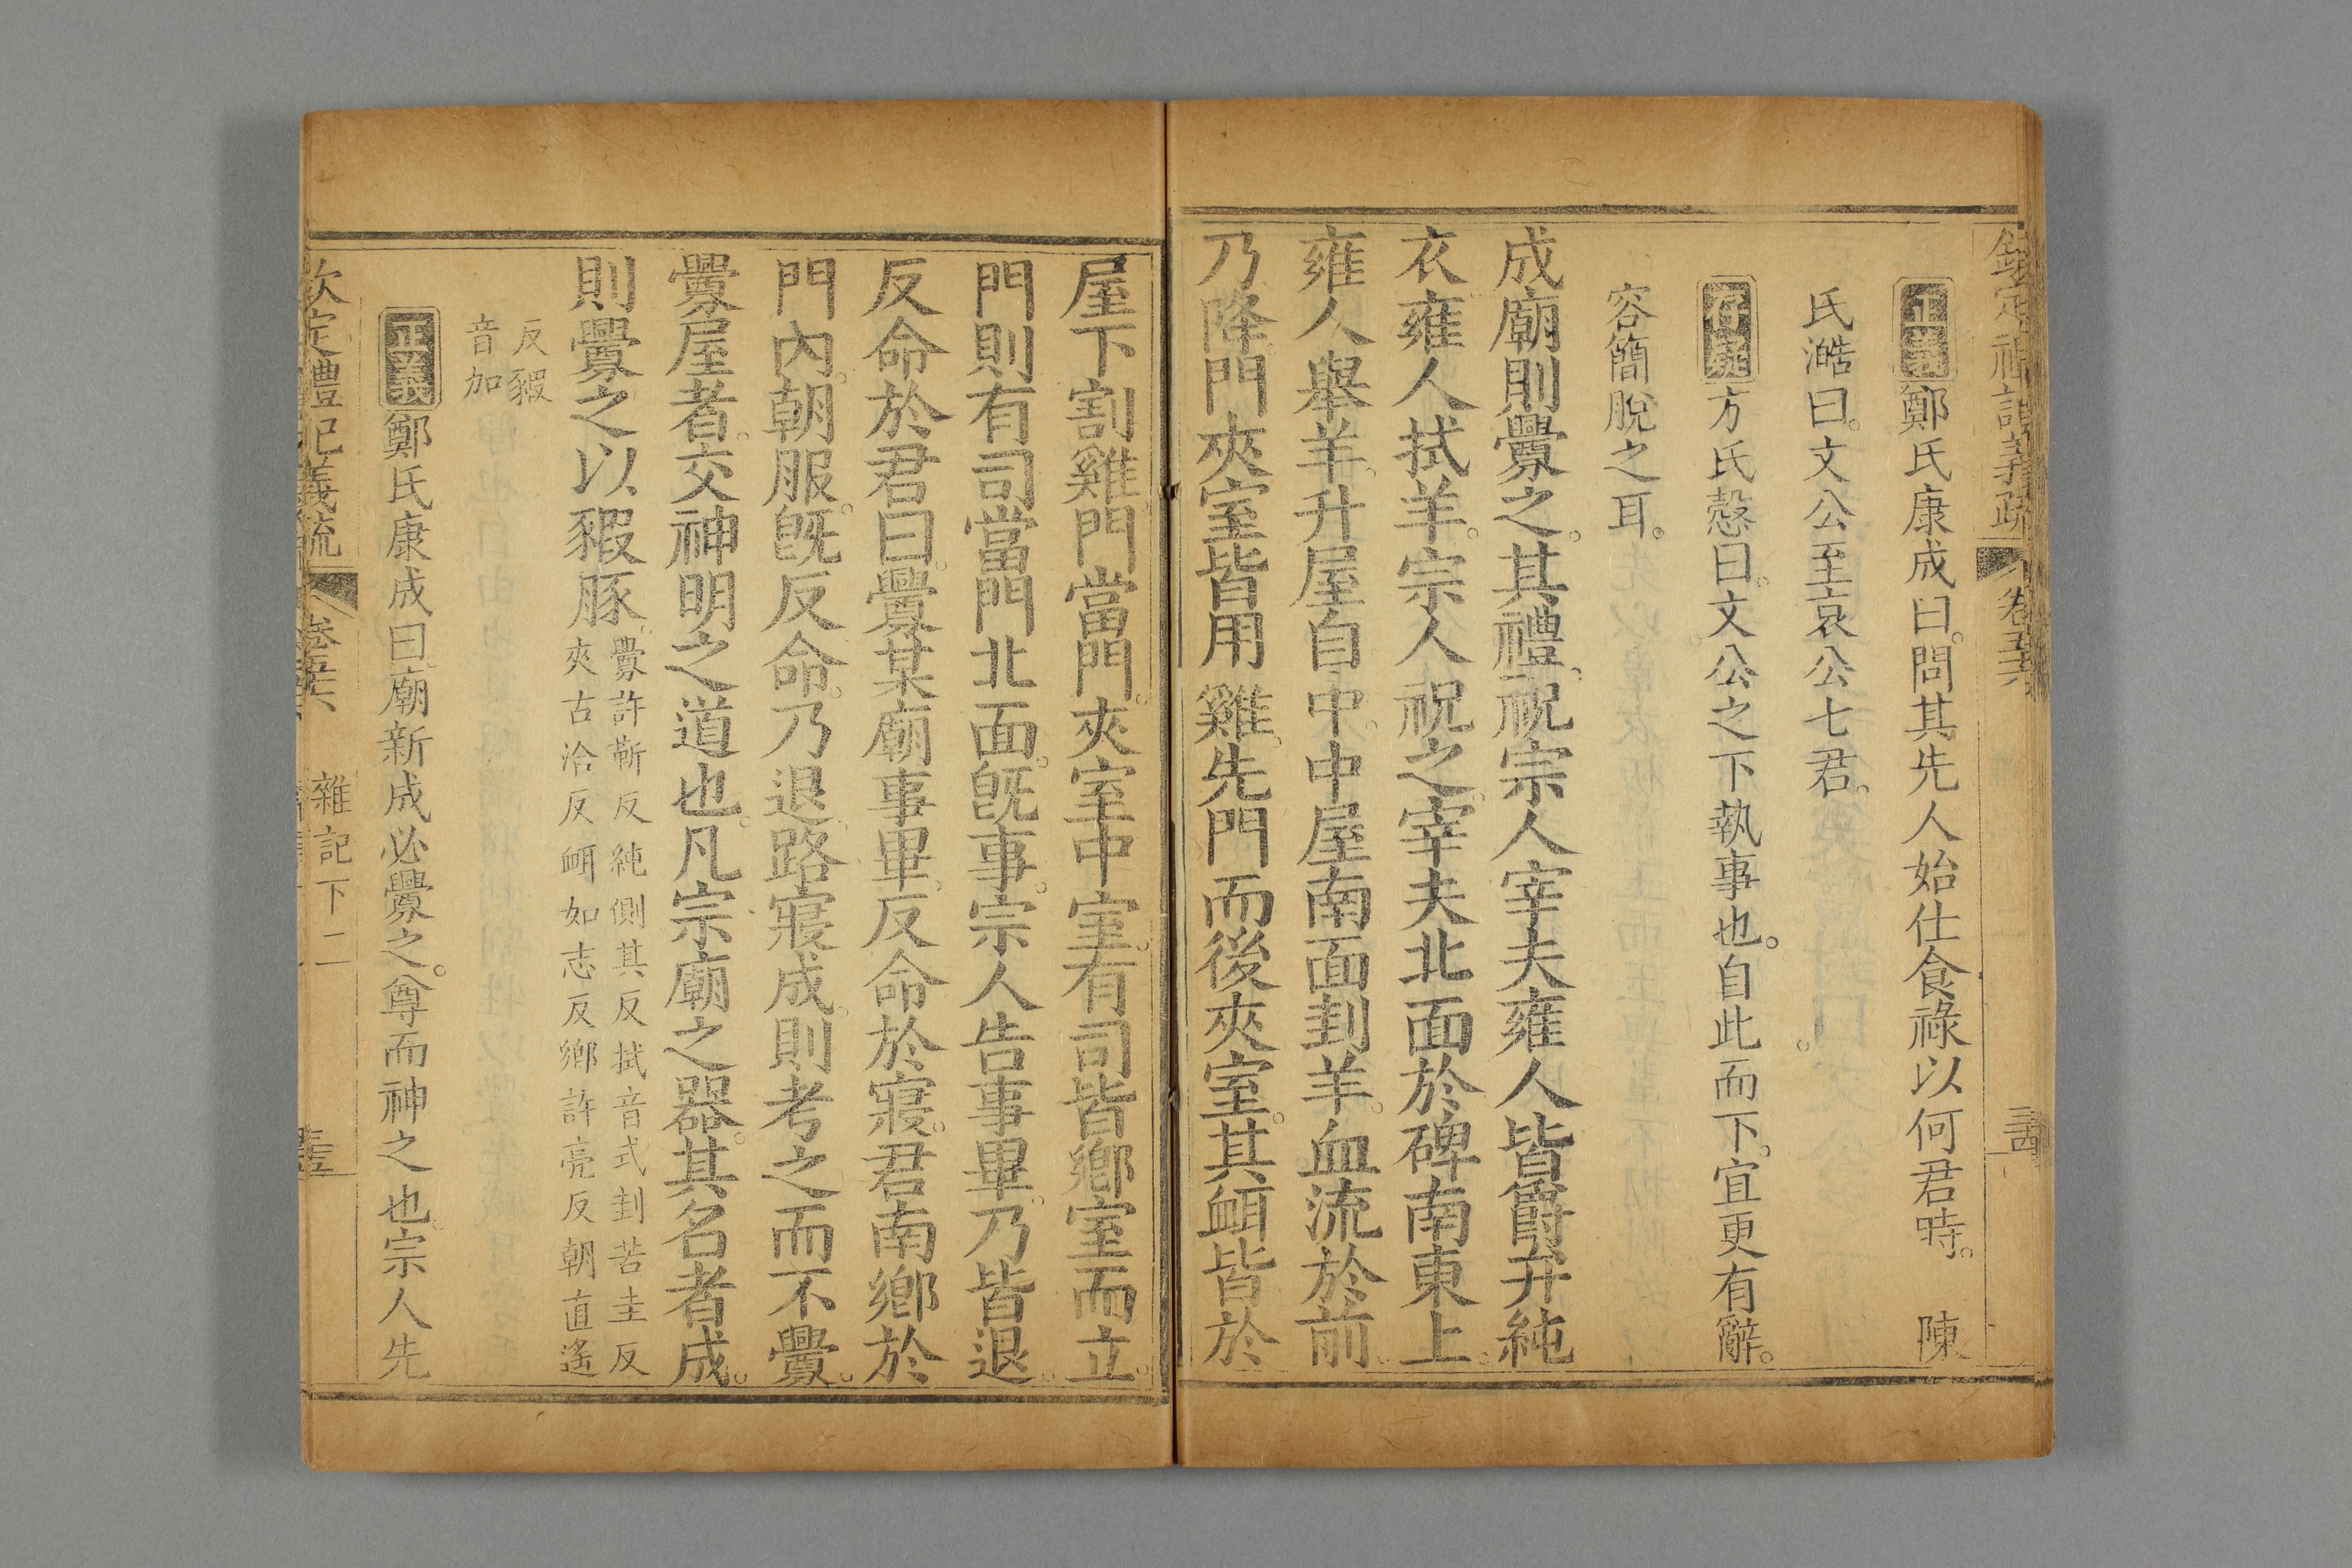 欽定禮記義疏 卷五六 三西
正義鄭氏康成曰問其先人始仕食祿以何君時 陳
氏澔曰文公至哀公七君
存疑方氏慤曰文公之下執事也自此而下宜更有辭
容簡脫之耳
成廟則釁之其禮祝宗人宰夫雍人皆爵弁純
衣雍人拭羊宗人祝之宰夫北面於碑南東上
雍人舉羊升屋自中中屋南面刲羊血流於前
乃降門夾室皆用雞先門而後夾室其衈皆於
屋下割雞門當門夾室中室有司皆鄉室而立
門則有司當門北面旣事宗人告事畢乃皆退
反命於君曰釁某廟事畢反命於寢君南鄉於
門內朝服旣反命乃退路寢成則考之而不釁
釁屋者交神明之道也凡宗廟之器其名者成
則釁之以豭豚
釁許靳反純側其反拭音式刲苦圭反
夾古洽反衈如志反鄉許亮反朝直遙
反豭
音加
正義鄭氏康成曰廟新成必釁之尊而神之也宗人先
欽定禮記義疏 卷五六 雜記下二